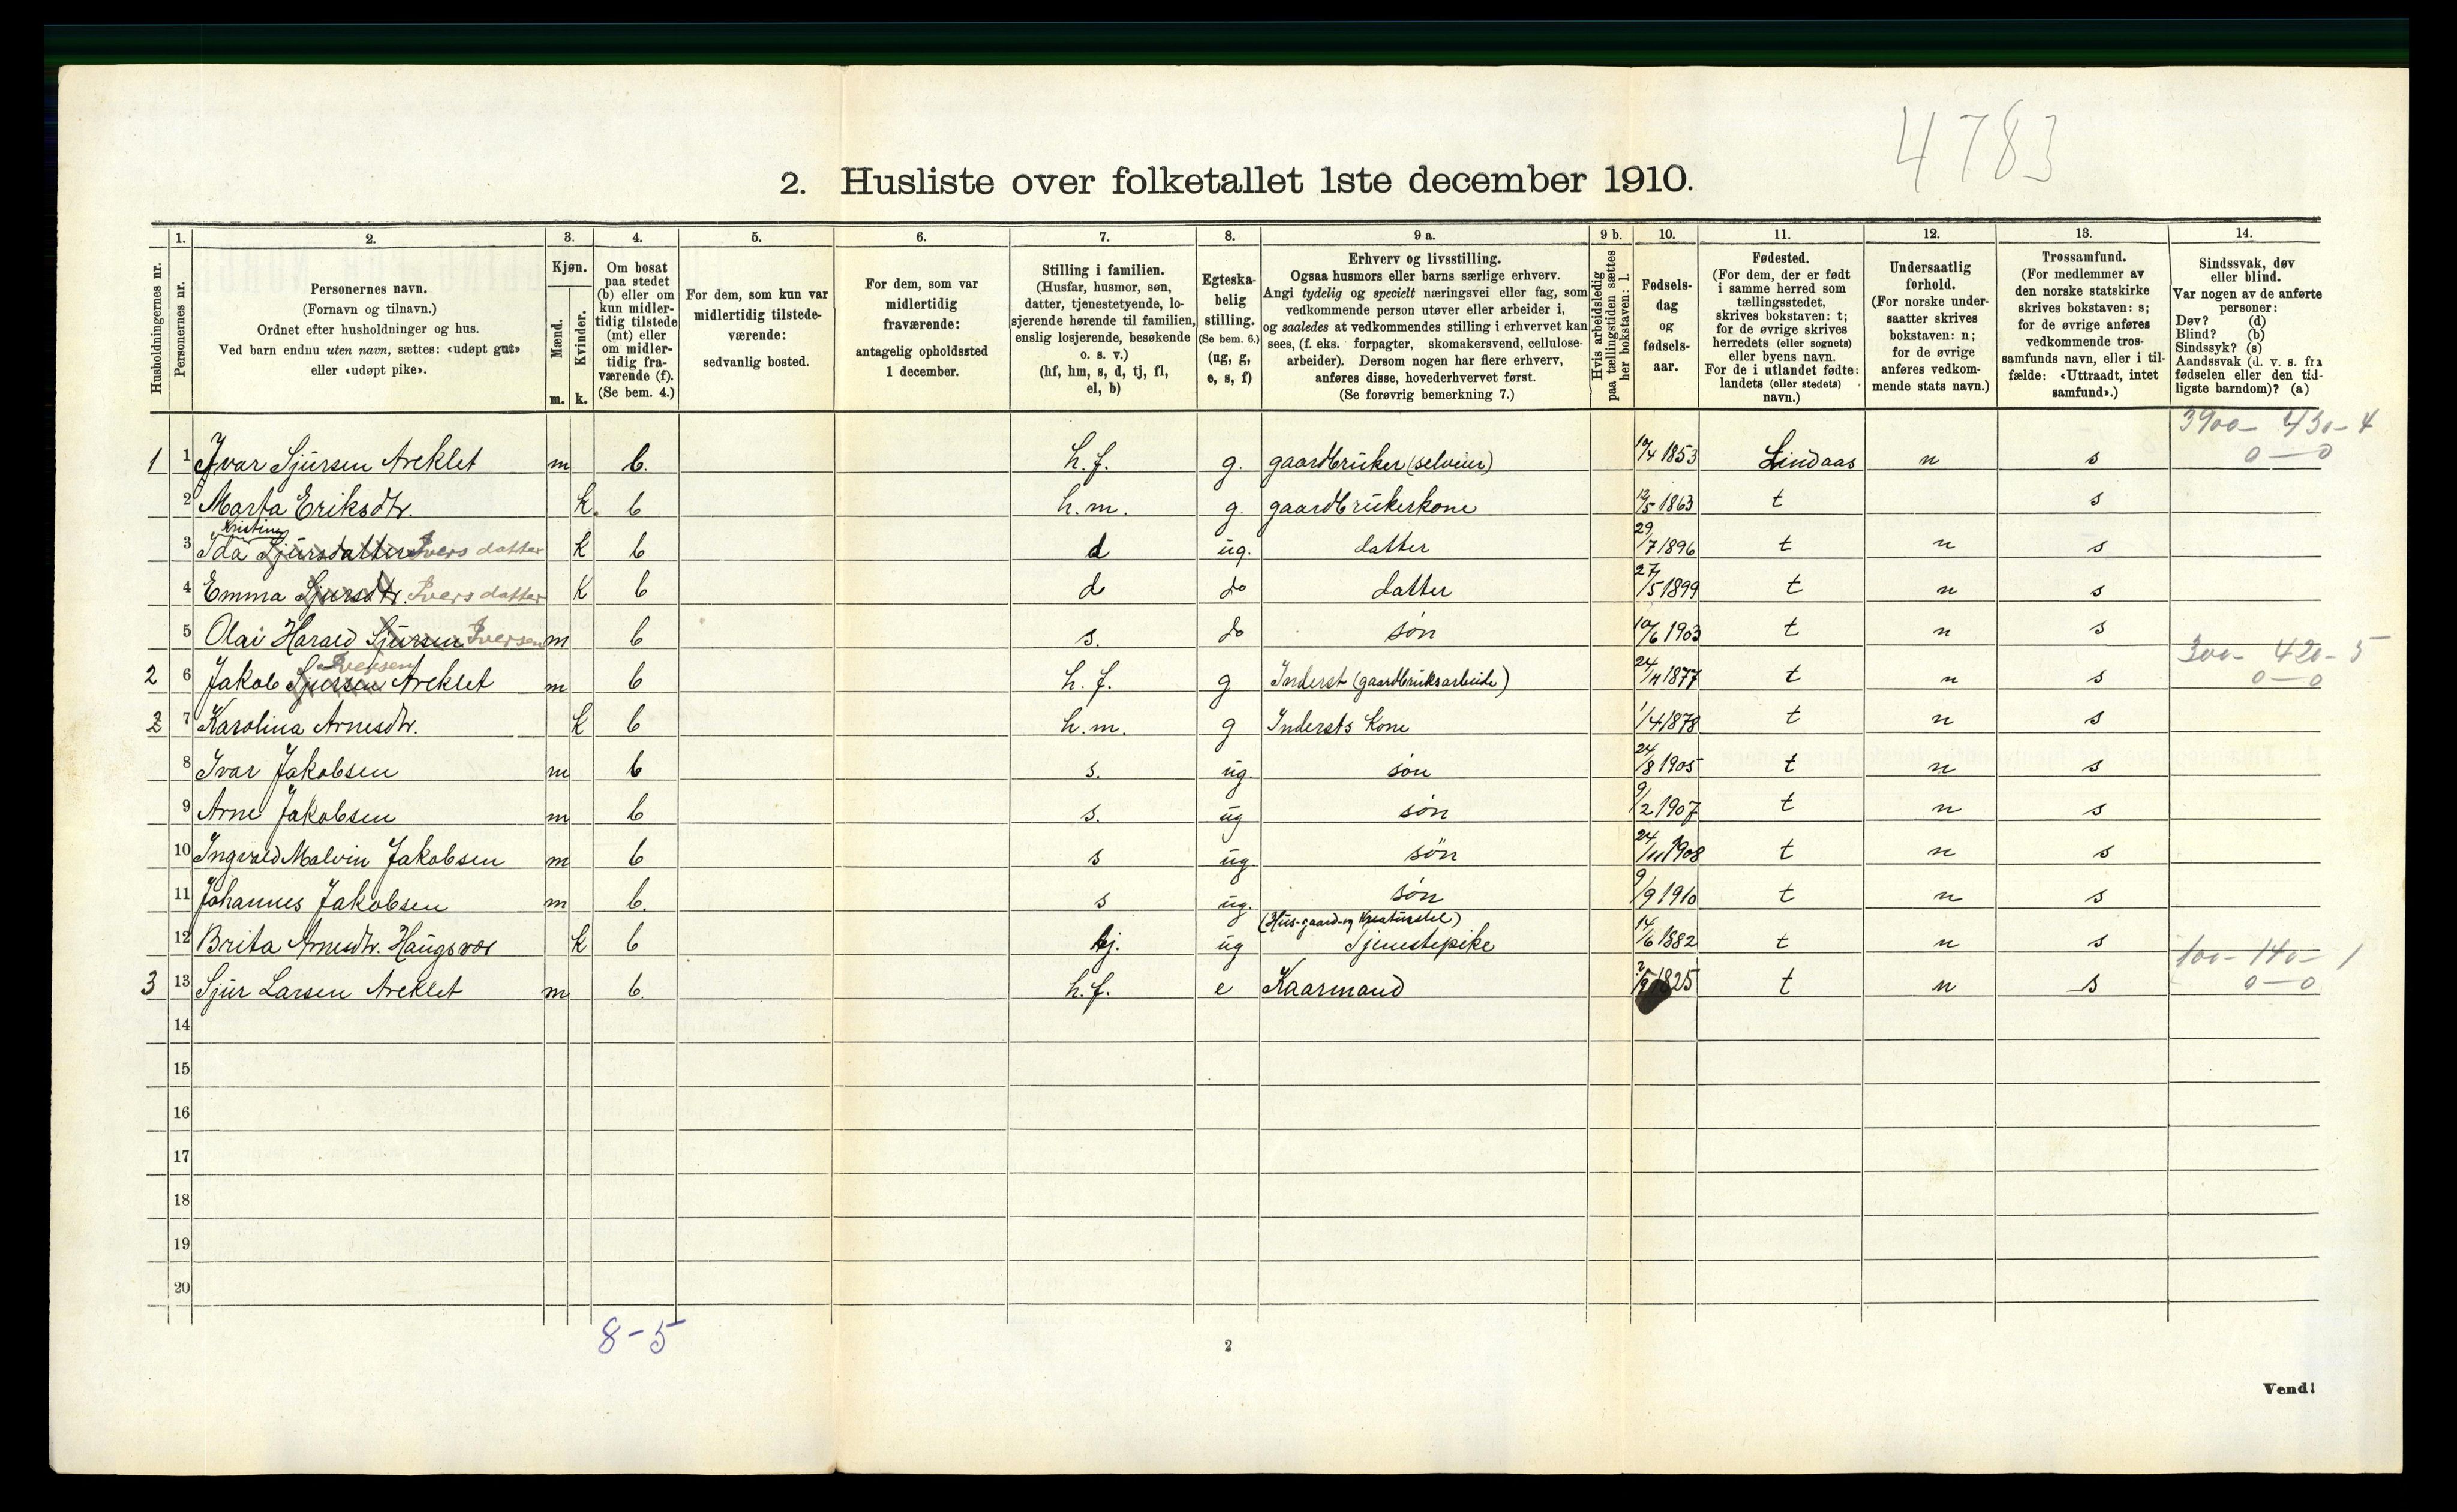 4783
2. Husliste over folketallet 1ste december 1910.
Husholdningernes nr.
1. Personernes nr.
2. Personernes navn.
(Fornavn og tilnavn.)
Ordnet efter husholdninger og hus.
Ved barn endnu uten navn, sættes: «udøpt gut»
eller «udøpt pike».
3. Kjøn.
Mænd. m.
Kvinder. k.
4. Om bosat
paa stedet
(b) eller om
kun midler-
tidig tilstede
(mt) eller
om midler-
tidig fra-
værende (f).
(Se bem. 4.)
5. For dem, som kun var
midlertidig tilstede-
værende:
sedvanlig bosted.
6. For dem, som var
midlertidig
fraværende:
antagelig opholdssted
1 december.
7. Stilling i familien.
(Husfar, husmor, søn,
datter, tjenestetyende, lo-
sjerende hørende til familien,
enslig losjerende, besøkende
o. s. v.)
(hf, hm, s, d, tj, fl,
el, b)
8. Egteska-
belig
stilling.
(Se bem. 6.)
(ug, g,
e, s, f)
9 a. Erhverv og livsstilling.
Ogsaa husmors eller barns særlige erhverv.
Angi tydelig og specielt næringsvei eller fag, som
vedkommende person utøver eller arbeider i,
og saaledes at vedkommendes stilling i erhvervet kan
sees, (f. eks. forpagter, skomakersvend, cellulose-
arbeider). Dersom nogen har flere erhverv,
anføres disse, hovederhvervet først.
(Se forøvrig bemerkning 7.)
9 b. Hvis arbeidsledig
paa tællingstiden sættes
her bokstaven: l.
10. Fødsels-
dag
og
fødsels-
aar.
11. Fødested.
(For dem, der er født
i samme herred som
tællingsstedet,
skrives bokstaven: t;
for de øvrige skrives
herredets (eller sognets)
eller byens navn.
For de i utlandet fødte:
landets (eller stedets)
navn.)
12. Undersaatlig
forhold.
(For norske under-
saatter skrives
bokstaven: n;
for de øvrige
anføres vedkom-
mende stats navn.)
13. Trossamfund.
(For medlemmer av
den norske statskirke
skrives bokstaven: s;
for de øvrige anføres
vedkommende tros-
samfunds navn, eller i til-
fælde: «Uttraadt, intet
samfund».)
14. Sindssvak, døv
eller blind.
Var nogen av de anførte
personer:
Døv? (d)
Blind? (b)
Sindssyk? (s)
Aandssvak (d. v. s. fra
fødselen eller den tid-
ligste barndom)? (a)
3900- 430-4
1 1 Ivar Sjursen Areklet m b. h.f. g. gaardbruker (selveier) 10/4 1853 Lindaas n s 0-0
2 Marta Eriksdtr. k. b h.m. g. gaardbrukerkone 12/5 1863 t s
Kristine
3 Ida Sjursdatter Ivers datter k b d ug. datter 29/7 1896 t n s
4 Emma Sjursdtr. Ivers datter k b d do datter 27/5 1899 t n s
5 Olai Harald Sjursen Iversen m b s. do søn 10/6 1903 t n s
Iversen 300- 420-5
2 6 Jakob Sjursen Areklet m b h.f. g Inderst (gaardbruksarbeide) 24/11 1877 t n s 0-0
2 7 Karolina Arnesdtr. k b h.m. g Inderts Kone 1/4 1878 t n s
8 Ivar Jakobsen m b s. ug. søn 24/8 1905 t n s
9 Arne Jakobsen m b s. ug søn 9/2 1907 t n s
10 Ingvald Malvin Jakobsen m b s ug. søn 24/11 1908 t n s
11 Johannes Jakobsen m b. s ug. søn 9/9 1910 t n s
(Hus-gaard-og Kreaturstel)
12 Brita Arnesdtr. Haugsvær k b tj. ug Tjenestepike 14/6 1882 t n s
100- 140- 1
3 13 Sjur Larsen Areklet m b. h.f. e Kaarmand 1825 t n s 0-0
14
15
16
17
18
19
20
8-5
2
Vend!